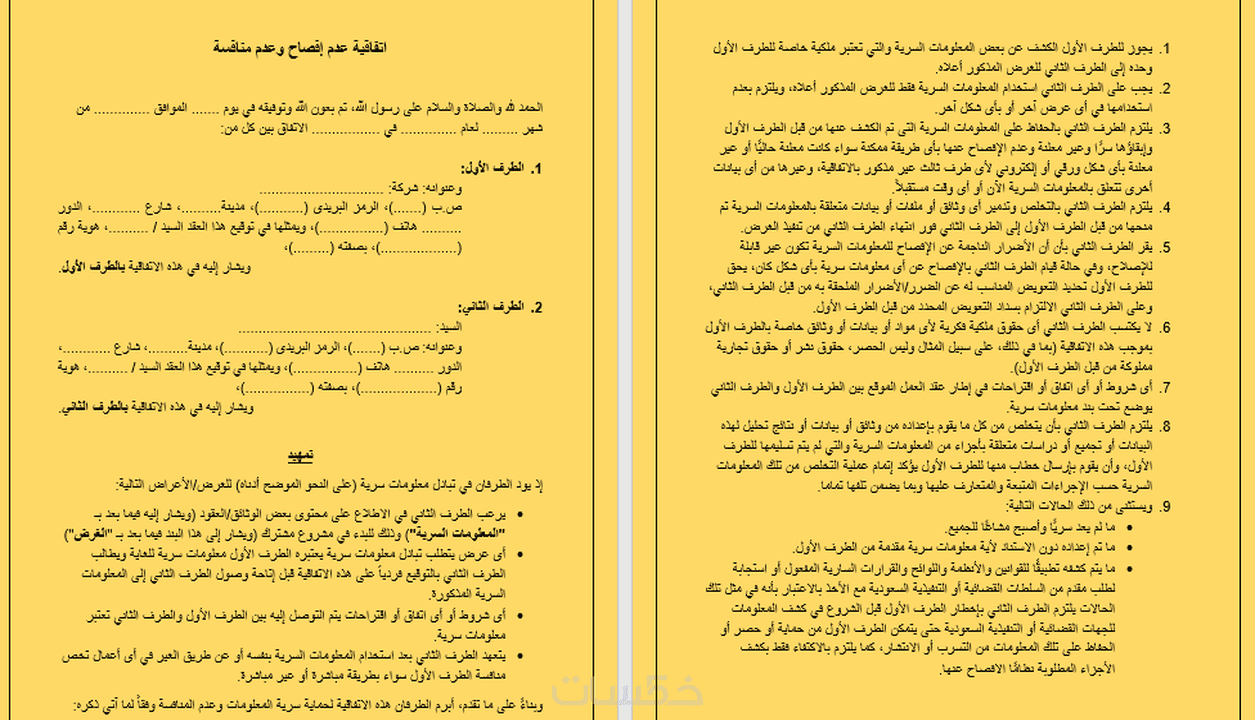 اتفاقية عدم إفصاح وعدم منافسة
الحمد لله والصلاة والسلام على رسول الله، تم بعون الله وتوفيقه في يوم ....... الموافق .............. من
شهر ......... لعام .............. في ................. الاتفاق بين كل من:
1. الطرف الأول:
وعنوانه: شركة: ................................
ص.ب (.......)، الرمز البريدى (...........)، مدينة..........، شارع ............، الدور
.......... هاتف (................)، ويمثلها في توقيع هذا العقد السيد / ..........، هوية رقم
(...................)، بصفته (.........)،
ويشار إليه في هذه الاتفاقية بالطرف الأول.
2. الطرف الثاني:
السيد: ................................................
وعنوانه: ص.ب (.......)، الرمز البريدى (...........)، مدينة..........، شارع ............،
الدور .......... هاتف (................)، ويمثلها في توقيع هذا العقد السيد / ..........، هوية
رقم (...................)، بصفته (................)،
ويشار إليه في هذه الاتفاقية بالطرف الثاني.
تمهيد
إذ يود الطرفان في تبادل معلومات سرية (على النحو الموضح أدناه) للغرض/الأغراض التالية:
• يرغب الطرف الثاني في الاطلاع على محتوى بعض الوثائق/العقود (ويشار إليه فيما بعد بـ
"المعلومات السرية") وذلك للبدء في مشروع مشترك (ويشار إلى هذا البند فيما بعد بـ "الغرض")
• أى غرض يتطلب تبادل معلومات سرية يعتبره الطرف الأول معلومات سرية للغاية ويطالب
الطرف الثاني بالتوقيع فردياً على هذه الاتفاقية قبل إتاحة وصول الطرف الثاني إلى المعلومات
السرية المذكورة.
• أى شروط أو أى اتفاق أو اقتراحات يتم التوصل إليه بين الطرف الأول والطرف الثاني تعتبر
معلومات سرية.
• يتعهد الطرف الثاني بعد استخدام المعلومات السرية بنفسه أو عن طريق الغير في أى أعمال تخص
منافسة الطرف الأول سواء بطريقة مباشرة أو غير مباشرة.
وبناءً على ما تقدم، أبرم الطرفان هذه الاتفاقية لحماية سرية المعلومات وعدم المنافسة وفقاً لما آتي ذكره:
1. يجوز للطرف الأول الكشف عن بعض المعلومات السرية والتي تعتبر ملكية خاصة للطرف الأول
وحده إلى الطرف الثاني للغرض المذكور أعلاه.
2. يجب على الطرف الثاني استخدام المعلومات السرية فقط للغرض المذكور أعلاه، ويلتزم بعدم
استخدامها في أى غرض آخر أو بأى شكل آخر.
3. يلتزم الطرف الثاني بالحفاظ على المعلومات السرية التى تم الكشف عنها من قبل الطرف الأول
وإبقاؤها سرًّا وغير معلنة وعدم الإفصاح عنها بأى طريقة ممكنة سواء كانت معلنة حاليًّا أو غير
معلنة بأى شكل ورقي أو إلكتروني لأى طرف ثالث غير مذكور بالاتفاقية، وغيرها من أى بيانات
أخرى تتعلق بالمعلومات السرية الآن أو أى وقت مستقبلاً.
4. يلتزم الطرف الثاني بالتخلص وتدمير أى وثائق أو ملفات أو بيانات متعلقة بالمعلومات السرية تم
منحها من قبل الطرف الأول إلى الطرف الثاني فور انتهاء الطرف الثاني من تنفيذ الغرض.
5. يقر الطرف الثاني بأن أن الأضرار الناجمة عن الإفصاح للمعلومات السرية تكون غير قابلة
للإصلاح، وفي حالة قيام الطرف الثاني بالإفصاح عن أى معلومات سرية بأى شكل كان، يحق
للطرف الأول تحديد التعويض المناسب له عن الضرر/الأضرار الملحقة به من قبل الطرف الثاني،
وعلى الطرف الثاني الالتزام بسداد التعويض المحدد من قبل الطرف الأول.
6. لا يكتسب الطرف الثاني أى حقوق ملكية فكرية لأى مواد أو بيانات أو وثائق خاصة بالطرف الأول
بموجب هذه الاتفاقية (بما في ذلك، على سبيل المثال وليس الحصر، حقوق نشر أو حقوق تجارية
مملوكة من قبل الطرف الأول).
7. أى شروط أو أى اتفاق أو اقتراحات في إطار عقد العمل الموقع بين الطرف الأول والطرف الثاني
يوضع تحت بند معلومات سرية.
8. يلتزم الطرف الثاني بأن يتخلص من كل ما يقوم بإعداده من وثائق أو بيانات أو نتائج تحليل لهذه
البيانات أو تجميع أو دراسات متعلقة بأجزاء من المعلومات السرية والتي لم يتم تسليمها للطرف
الأول، وأن يقوم بإرسال خطاب منها للطرف الأول يؤكد إتمام عملية التخلص من تلك المعلومات
السرية حسب الإجراءات المتبعة والمتعارف عليها وبما يضمن تلفها تماما.
9. ويستثنى من ذلك الحالات التالية:
• ما لم يعد سريًّا وأصبح مشاعًا للجميع.
• ما تم إعداده دون الاستناد لأية معلومات سرية مقدمة من الطرف الأول.
• ما يتم كشفه تطبيقًا للقوانين والأنظمة واللوائح والقرارات السارية المفعول أو استجابة
لطلب مقدم من السلطات القضائية أو التنفيذية السعودية مع الأخذ بالاعتبار بأنه في مثل تلك
الحالات يلتزم الطرف الثاني بإخطار الطرف الأول قبل الشروع في كشف المعلومات
للجهات القضائية أو التنفيذية السعودية حتى يتمكن الطرف الأول من حماية أو حصر أو
الحفاظ على تلك المعلومات من التسرب أو الانتشار، كما يلتزم بالاكتفاء فقط بكشف
الأجزاء المطلوبة نظامًا الافصاح عنها.
خمسات